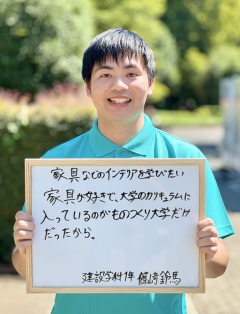 家具などのインテリアを学びたい
家具が好きで、大学のカリキュラムに
入っているのがものつくり大学だけ
だったから。
建設学科1年 篠崎 錦馬